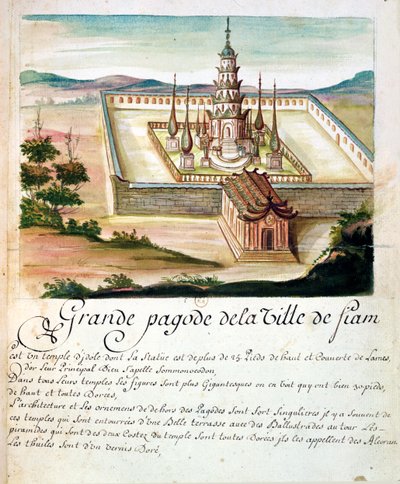 Grande pagode de la Ville de siam
est Un temple d'jdole dont La Statüe est de plus de 25 Pieds de haut et Couverte de Lames,
dor Leur Principal Dieu s'apelle Sommonocodon,
Dans tous Leurs temples Les figures sont plus Gigantesques on en Voit quy ont bien 30 pieds,
de haut et toutes Dorées,
L'architecture et Les ornemens de dehors des Pagodes sont fort Singulieres jl y a souvent de
ces temples qui sont entourrées d'Une Belle terrasse avec des Ballustrades au tour Les-
piramides qui sont des deux Costez du temple sont toutes Dorées jls les appellent des Alcoran
Les thuiles sont d'un Vernis Doré